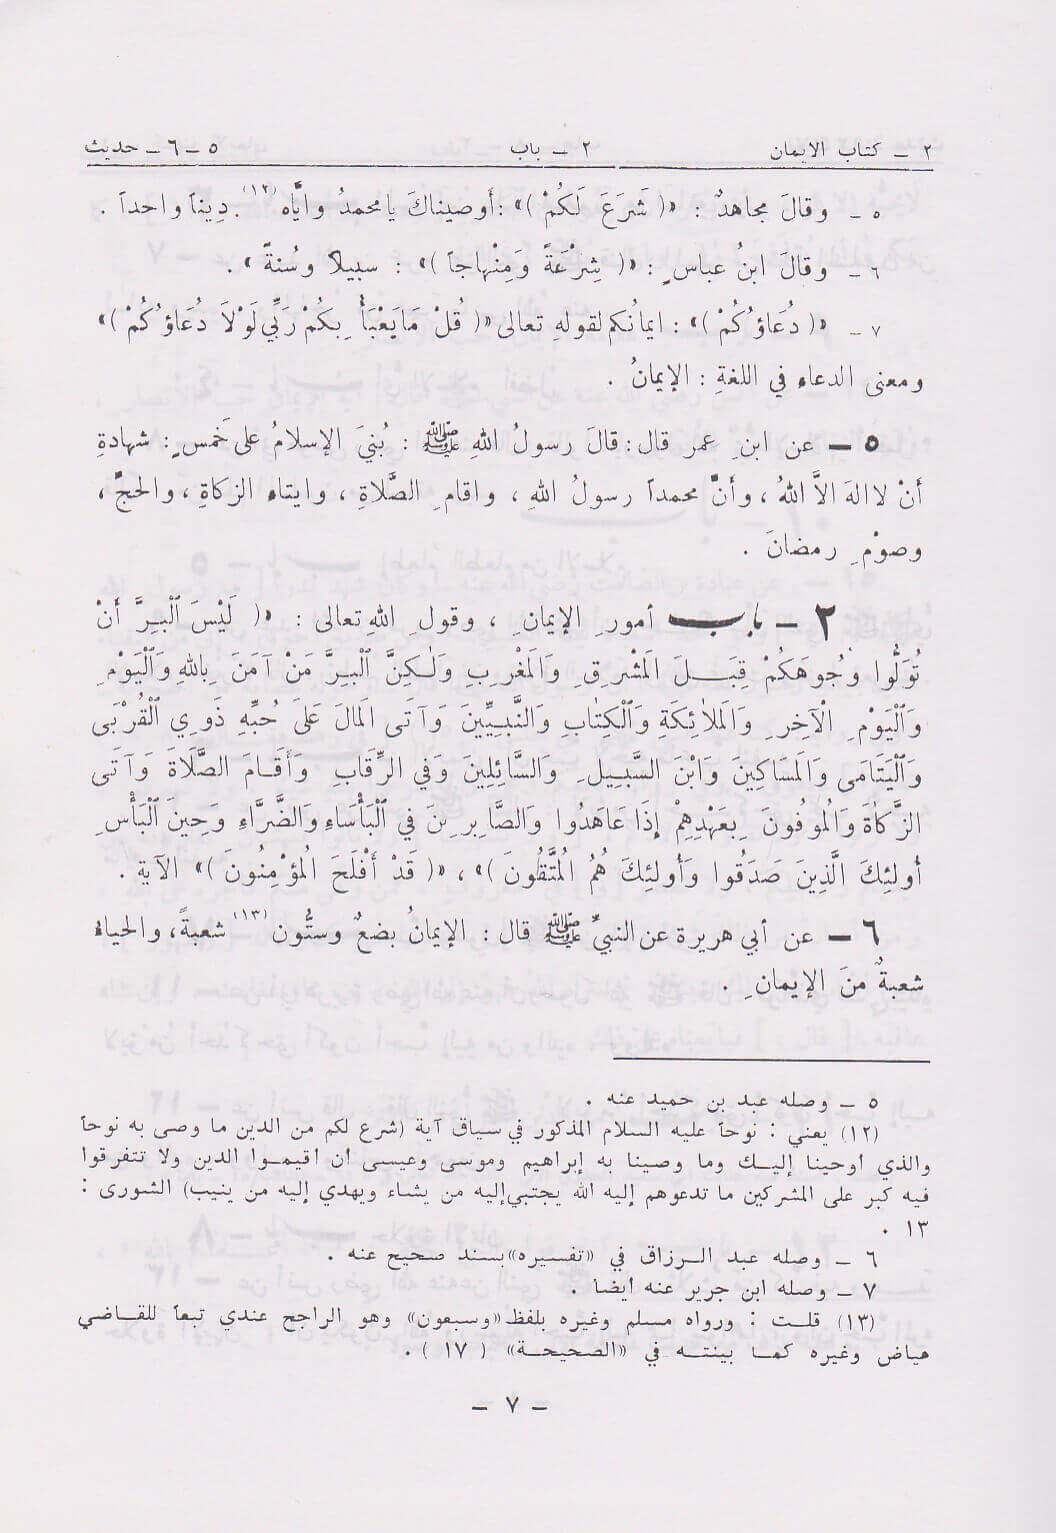 ٢ – كتاب الايمان ٢ – باب ٥ – ٦ – حديث
٥ – وقالَ مجاهدٌ : «( شَرَعَ لَكُمْ )» : أَوصيناكَ يا محمدُ وايَّاه (١٢) ديناً واحداً .
٦ – وقالَ ابنُ عباسٍ : «( شِرْعَةً وَمِنْهاجاً )» : سبيلا وسُنةً » .
٧ – «( دُعَاؤُكُمْ )» : ايمانُكم لقولهِ تعالى «( قُلْ مَا يَعْبَأُ بِكُمْ رَبِّي لَوْلاَ دُعَاؤُكُمْ )»
ومعنى الدعاء في اللغةِ : الإيمانُ .
٥ – عن ابنِ عمر قال : قالَ رسولُ اللهِ ﷺ : بُنيَ الإسلامُ على خَمسٍ : شهادةِ
أَنْ لا الهَ الاَّ اللهُ ، وأَنَّ محمداً رسولُ اللهِ ، واقامِ الصَّلاةِ ، وايتاء الزكاةِ ، والحجِّ ،
وصوْمِ رمضانَ .
٢ – باب أمورِ الإيمانِ ، وقولِ اللهِ تعالى : «( لَيْسَ ٱلْبِرَّ أَنْ
تُوَلُّوا وُجُوهَكُمْ قِبَلَ المَشْرِقِ وَالمَغْرِبِ وَلٰكِنَّ ٱلْبِرَّ مَنْ آمَنَ بِاللهِ وَٱلْيَوْمِ
وَٱلْيَوْمِ الْآخِرِ وَالمَلاَئِكَةِ وَٱلْكِتَابِ وَالنَّبِيِّينَ وَآتى المَالَ عَلَى حُبِّهِ ذَوِي ٱلْقُرْبَى
وَٱلْيَتَامَى وَالمَسَاكِينَ وَابْنَ السَّبِيلِ وَالسَّائِلِينَ وَفي الرِّقَابِ وَأَقَامَ الصَّلَاةَ وَآتَى
الزَّكَاةَ وَالمُوفُونَ بِعَهْدِهِمْ إِذَا عَاهَدُوا وَالصَّابِرِينَ في ٱلْبَأْسَاءِ وَالضَّرَّاءِ وَحِينَ ٱلْبَأْسِ
أُولئِكَ الَّذِينَ صَدَقُوا وَأُولئِكَ هُمُ المُتَّقُونَ )» ، «( قَدْ أَفْلَحَ المُؤْمِنُونَ )» الآيةَ .
٦ – عن أبي هريرة عن النبيِّ ﷺ قال : الإيمانُ بضعٌ وستُّون (١٣) شعبةً ، والحياء
شعبةٌ منَ الإيمانِ .
٥ – وصله عبد بن حميد عنه .
(١٢) يعني : نوحاً عليه السلام المذكور في سياق آية (شرع لكم من الدين ما وصى به نوحاً
والذي أوحينا إليك وما وصينا به إبراهيم وموسى وعيسى أن أقيموا الدين ولا تتفرقوا
فيه كبر على المشركين ما تدعوهم إليه الله يجتبي إليه من يشاء ويهدي إليه من ينيب) الشورى :
١٣ .
٦ – وصله عبد الرزاق في «تفسيره» بسند صحيح عنه .
٧ – وصله ابن جرير عنه أيضا .
(١٣) قلت : ورواه مسلم وغيره بلفظ «وسبعون» وهو الراجح عندي تبعاً للقاضي
هياض وغيره كما بينته في «الصحيحة» ( ١٧ ) .
– ٧ –